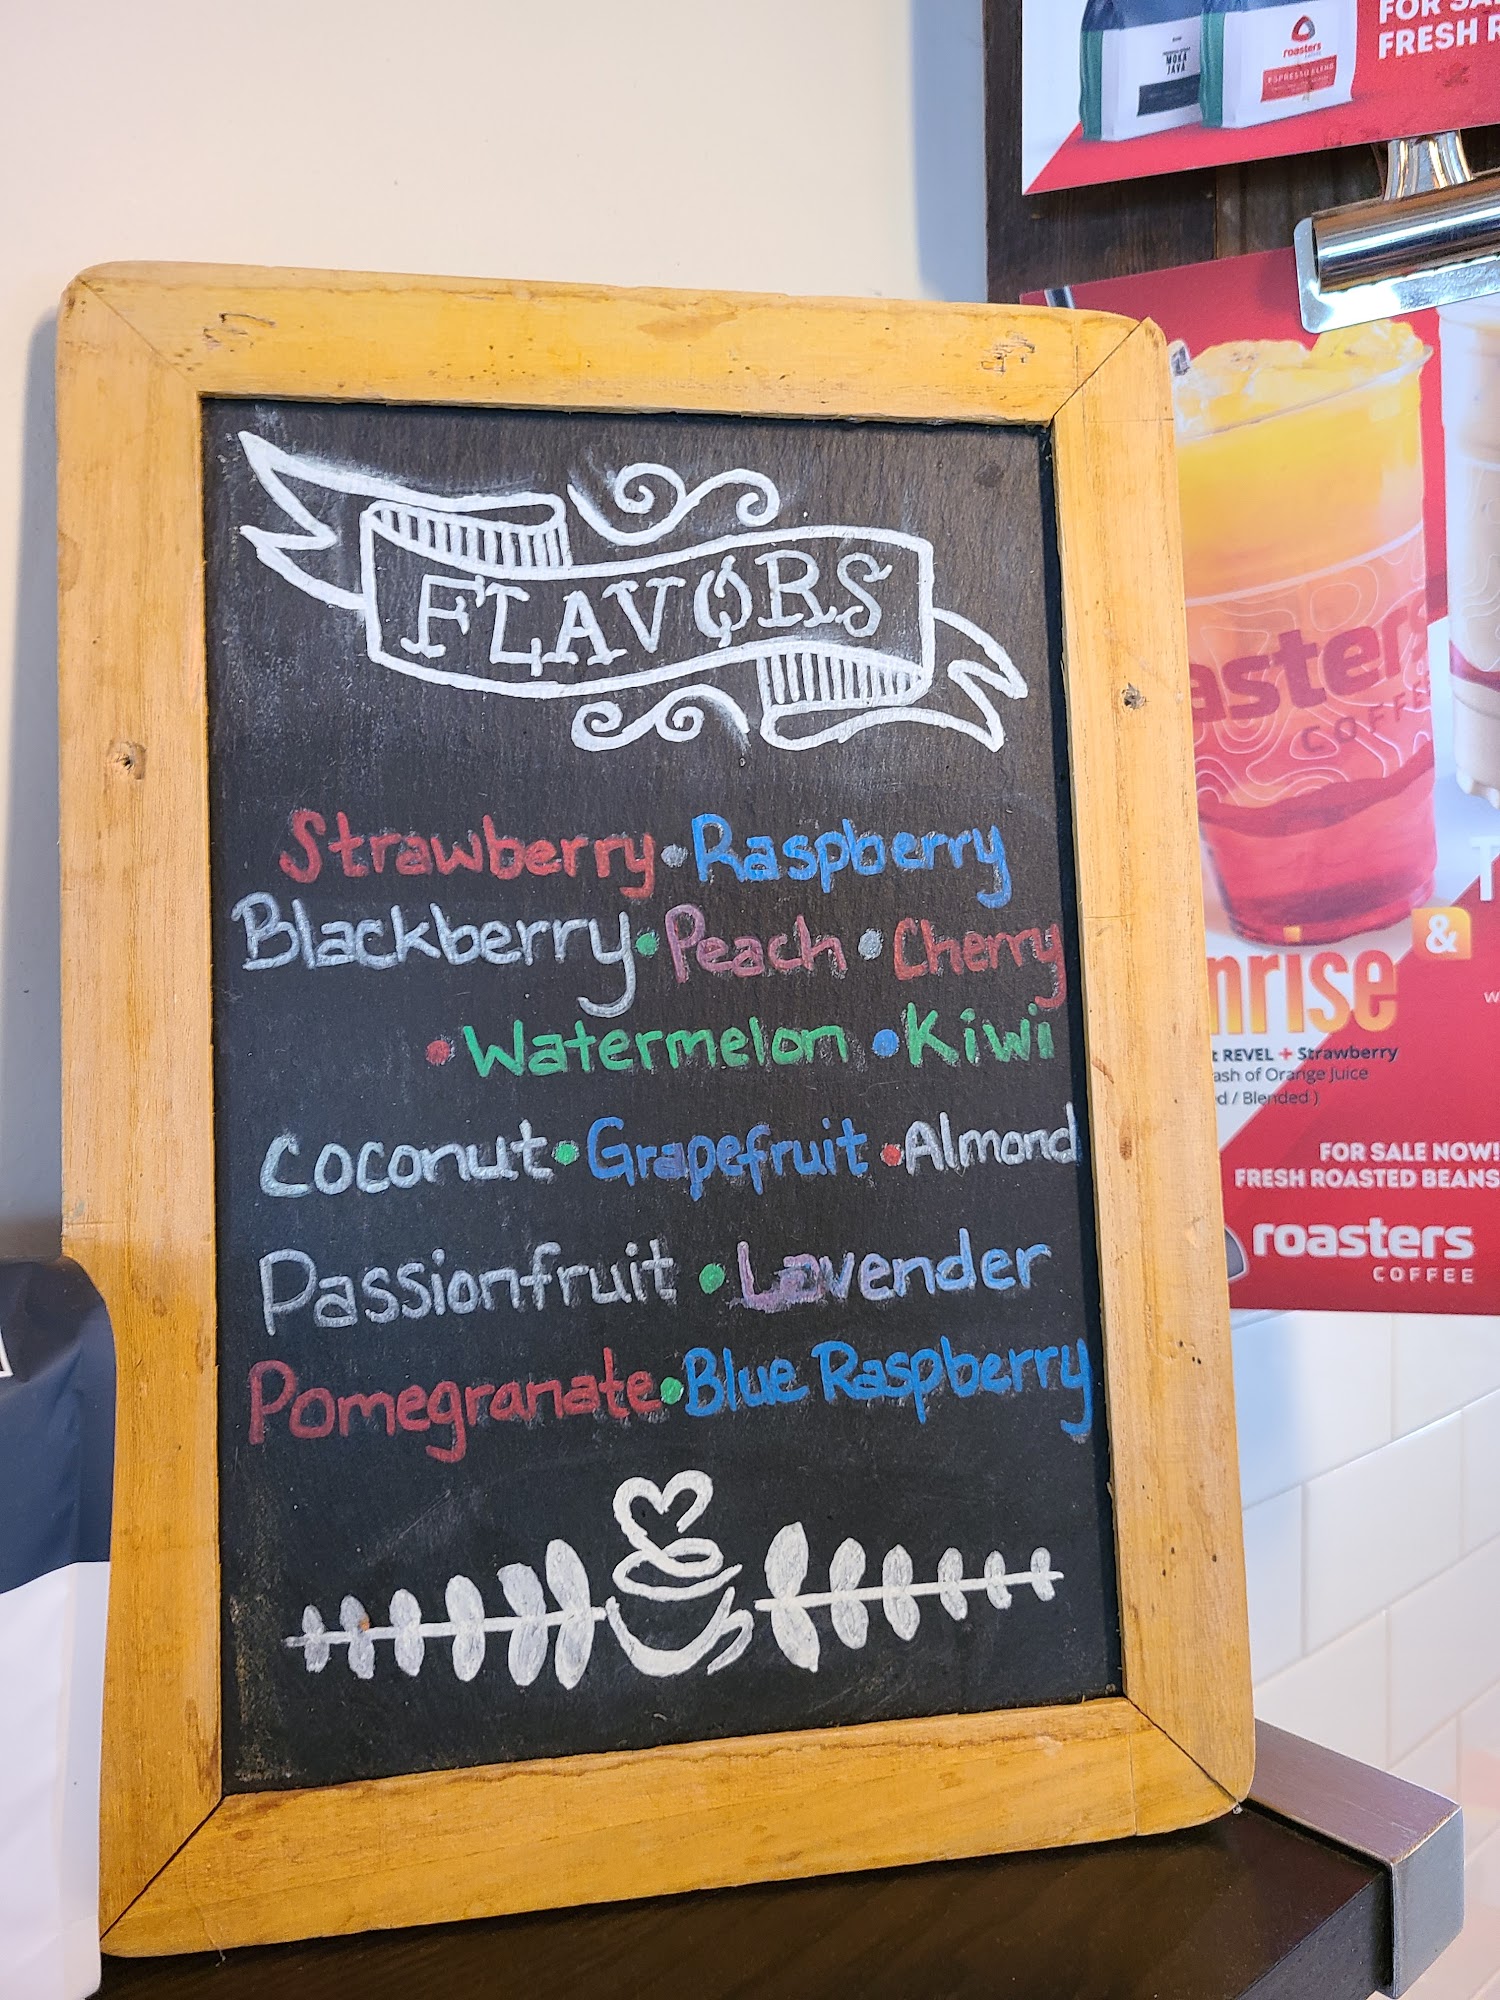 FLAVORS
Strawberry • Raspberry
Blackberry • Peach • Cherry
• Watermelon • Kiwi
Coconut • Grapefruit • Almond
Passionfruit • Lavender
Pomegranate • Blue Raspberry
FRESH
MOKA
JAVA
roasters
ESPRESSO BLEND
asters
COFFE
&
nrise
REVEL + Strawberry
ash of Orange Juice
d / Blended )
FOR SALE NOW!
FRESH ROASTED BEANS
roasters
COFFEE